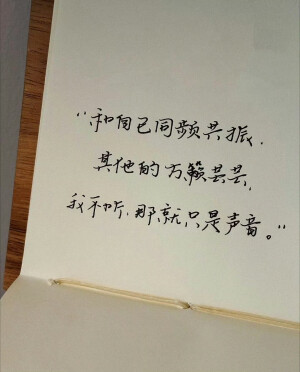 “和自己同频共振.
其他的万籁芸芸,
我不听,那就只是声音。”